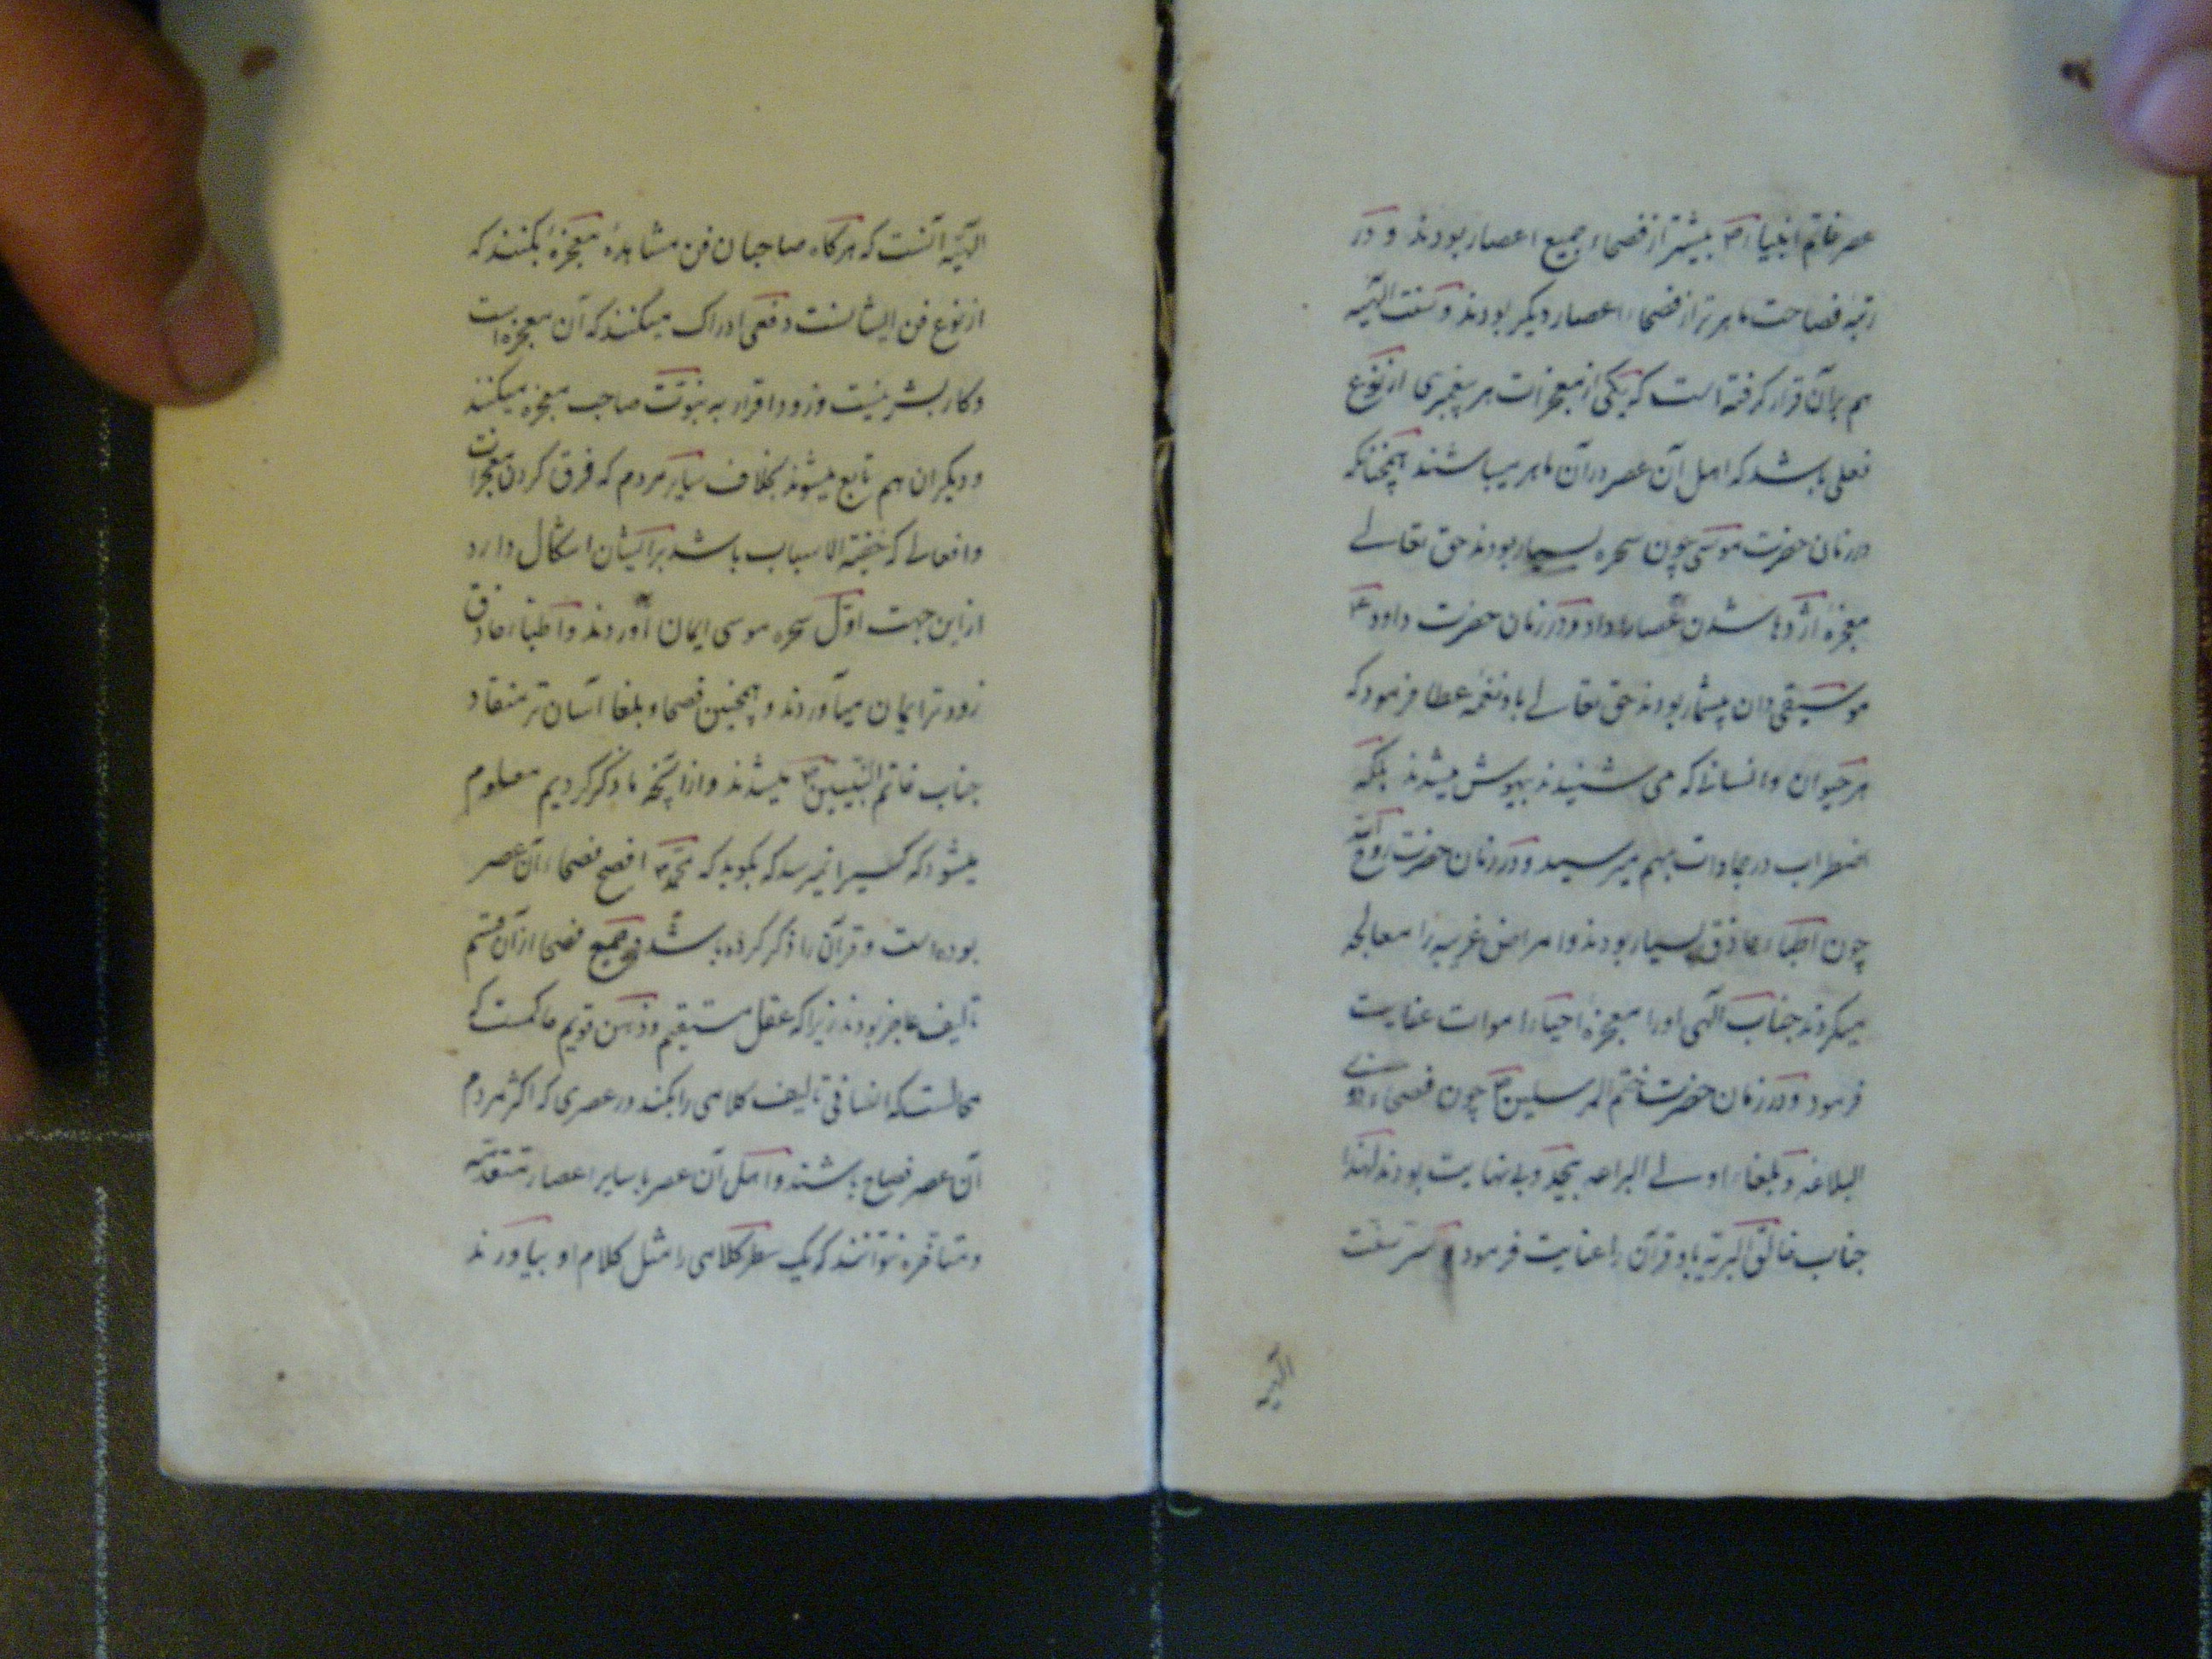 عصر خاتم انبیا ص بیشتر از فصحاء جمیع اعصار بودند و در
رتبهٔ فصاحت ماهرتر از فصحاء اعصار دیکر بودند و سنت الهیه
هم بر آن قرار کرفته است که یکی از معجزات هر پیغمبری از نوع
فعلی باشد که اهل آن عصر در آن ماهر میباشند همچنانکه
در زمان حضرت موسی چون سحره بسیار بودند حق تعالی
معجزهٔ اژدها شدن عصا را داد و در زمان حضرت داود ع
موسیقی دان بیشمار بودند حق تعالی باو نغمه عطا فرمود که
هر حیوان و انسان که می شنیدند بیهوش میشدند بلکه
اضطراب در جمادات بهم میرسید و در زمان حضرت روح الله
چون اطباء حاذق بسیار بودند و امراض غریبه را معالجه
میکردند جناب آلهی او را معجزهٔ احیاء اموات عنایت
فرمود و در زمان حضرت ختم المرسلین ص چون فصحاء ذوی
البلاغه و بلغاء اولی البراعه بیحد و بی نهایت بودند لهذا
جناب خالق البریه باو قرآن را عنایت فرمود و سر سنت
الهیه
الهیه آنست که هرکاه صاحبان فن مشاهدهٔ معجزهٔ بکنند که
از نوع فن ایشانست دفعی ادراک میکنند که آن معجزه است
و کار بشر نیست و زود اقرار به نبوت صاحب معجزه میکنند
و دیکران هم تابع میشوند بخلاف سایر مردم که فرق کردن معجزات
و افعالی که خفیة الاسباب باشد بر ایشان اشکال دارد
از این جهت اول سحره موسی ایمان آوردند و اطباء حاذق
زودتر ایمان میآوردند و همچنین فصحا و بلغا آسان تر منقاد
جناب خاتم النبیین ص میشدند و از آنچه ما ذکر کردیم معلوم
میشود که کسیرا نمیرسد که بکوید که محمد ص افصح فصحاء آن عصر
بوده است و قرآن را ذکر کرده باشد و جمیع فصحا از آن قسم
تألیف عاجز بودند زیرا که عقل مستقیم و ذهن قویم حاکمست که
محالست که انسانی تألیف کلامی را بکند در عصری که اکثر مردم
آن عصر فصاح باشند و اهل آن عصر با سایر اعصار متقدمه
و متأخره نتوانند که یک سطر کلامی را مثل کلام او بیاورند